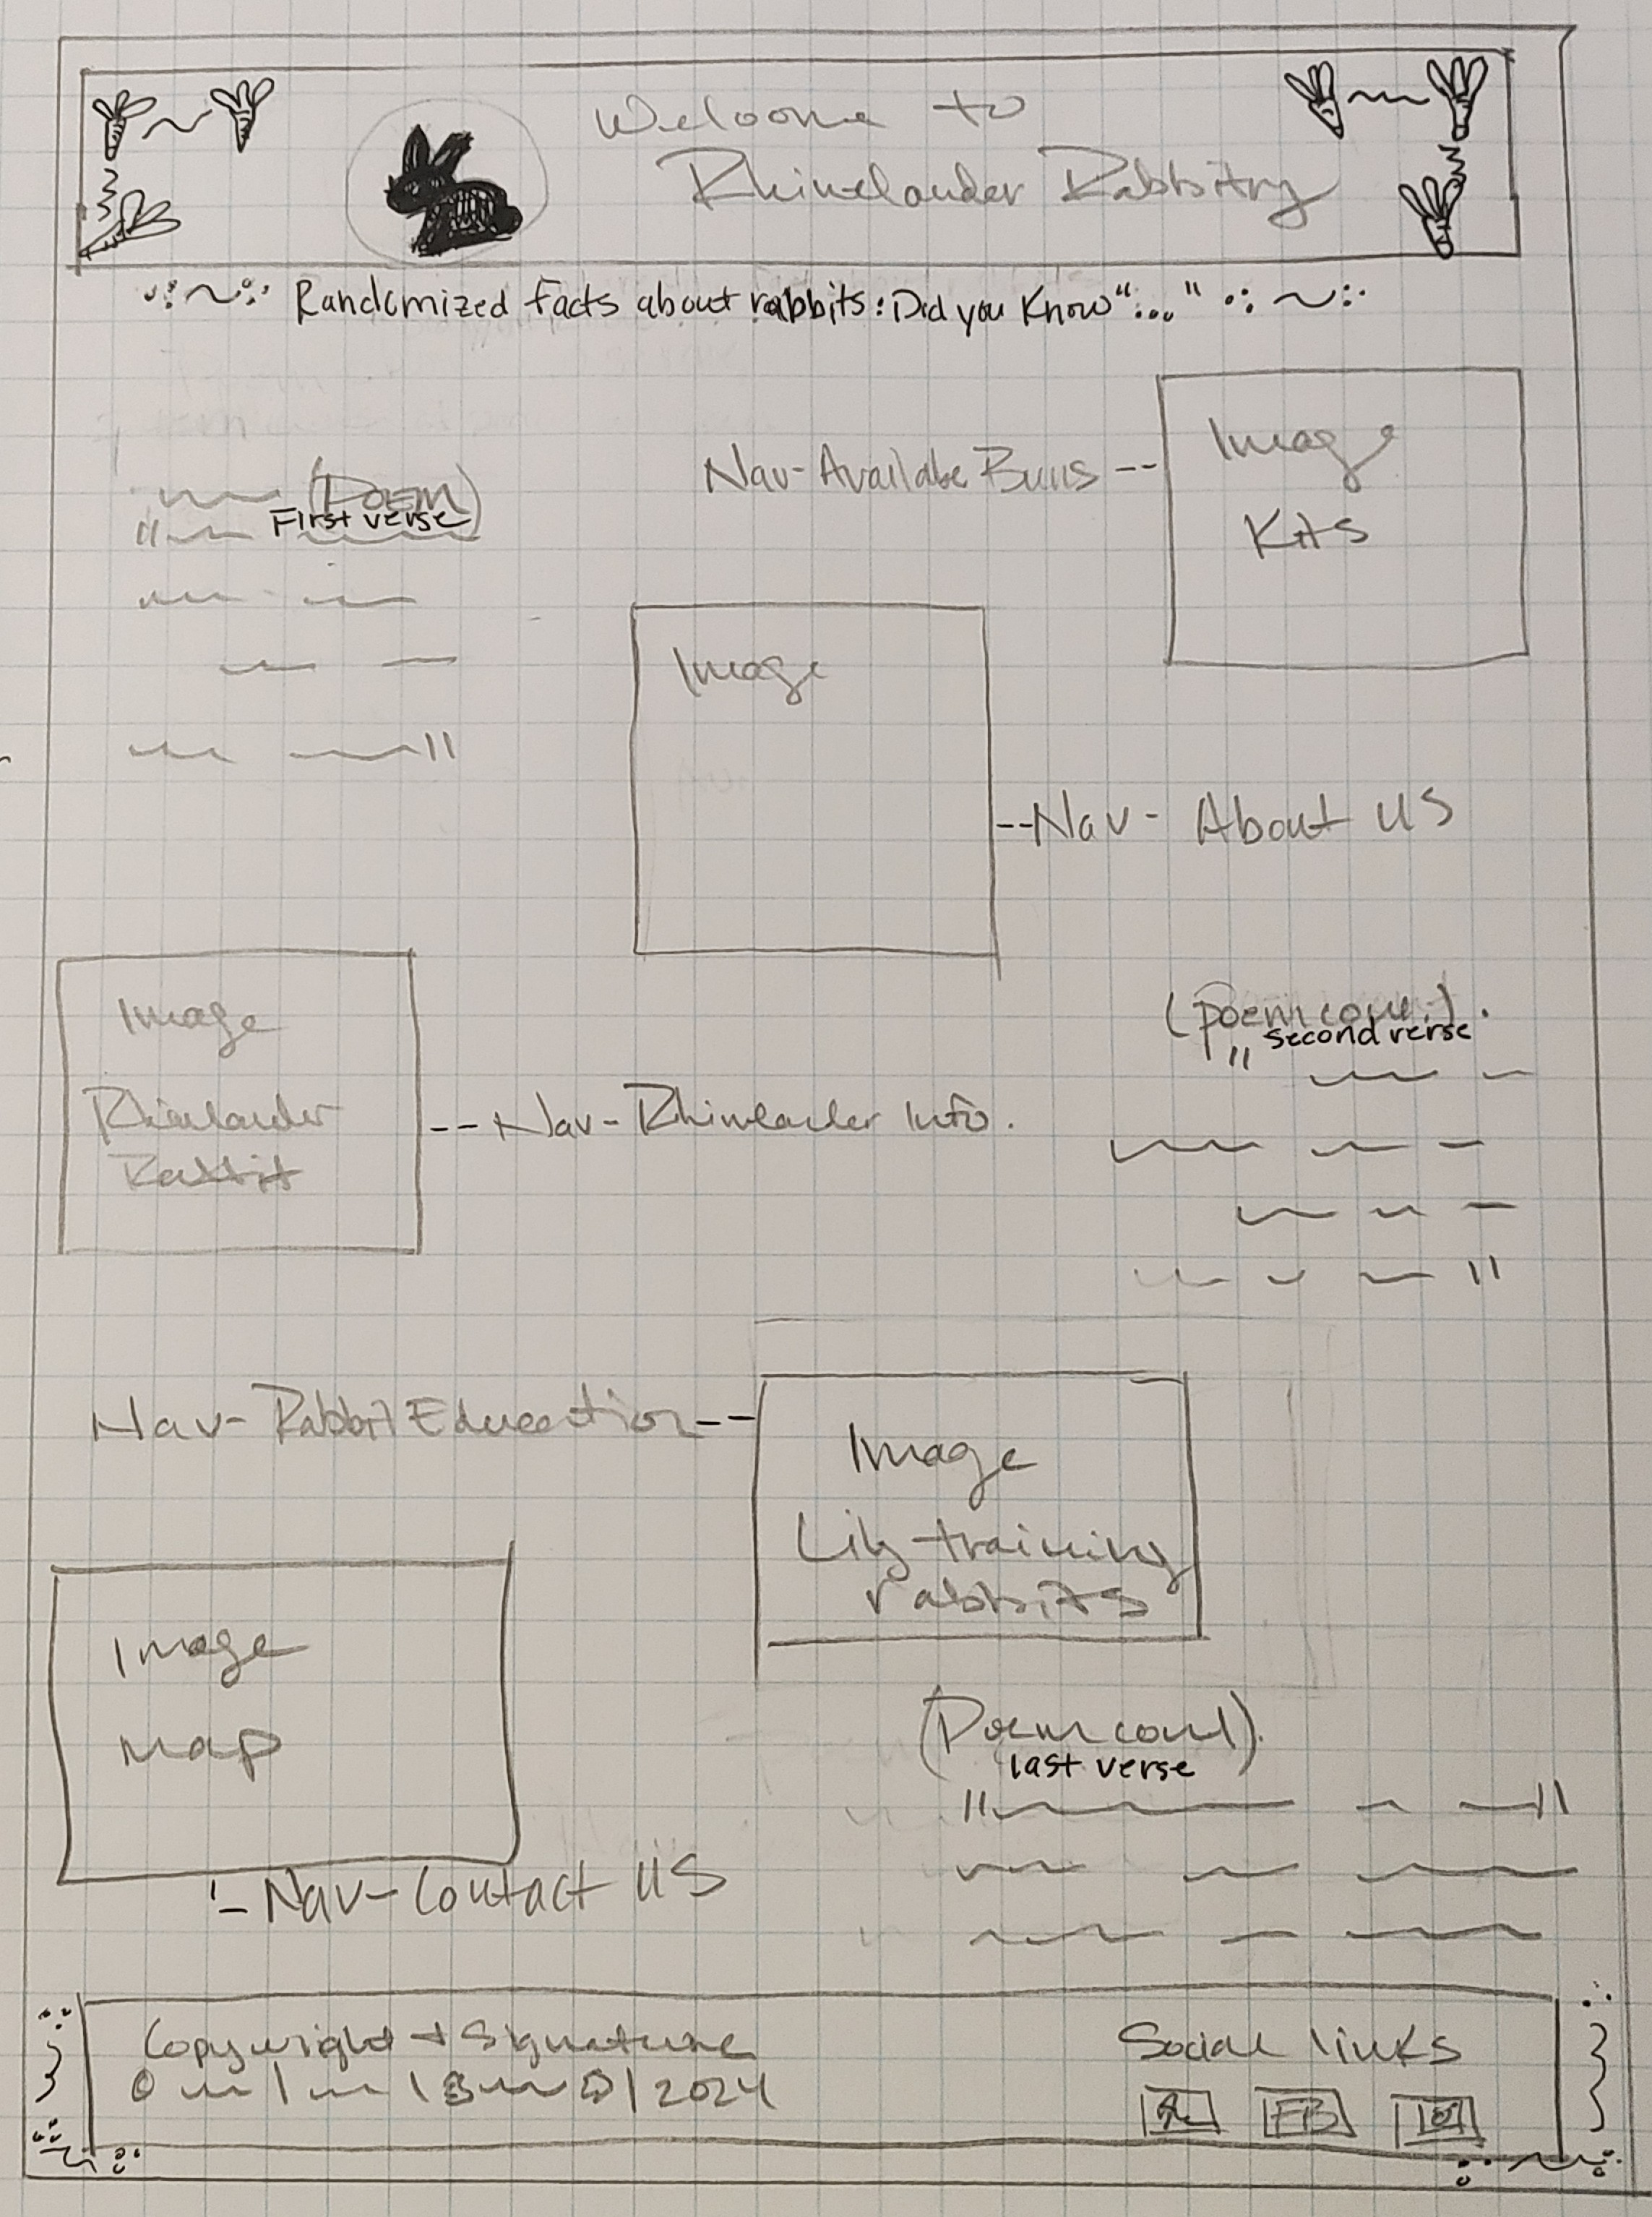 Welcome to
Rhinelander Rabbitry
Randomized facts about rabbits: Did you Know "..."
Nav-Availabe Buns --
Image
Kits
(Poem)
First verse
Image
--Nav- About US
Image
Rhinelander
Rabbit
--Nav-Rhinelander Info.
(poem cont.).
second verse
Nav-Rabbit Education--
Image
Lily training
rabbits
Image
map
(Poem cont).
last verse
- Nav-Contact US
Copywright + Signature
2024
Social links
FB